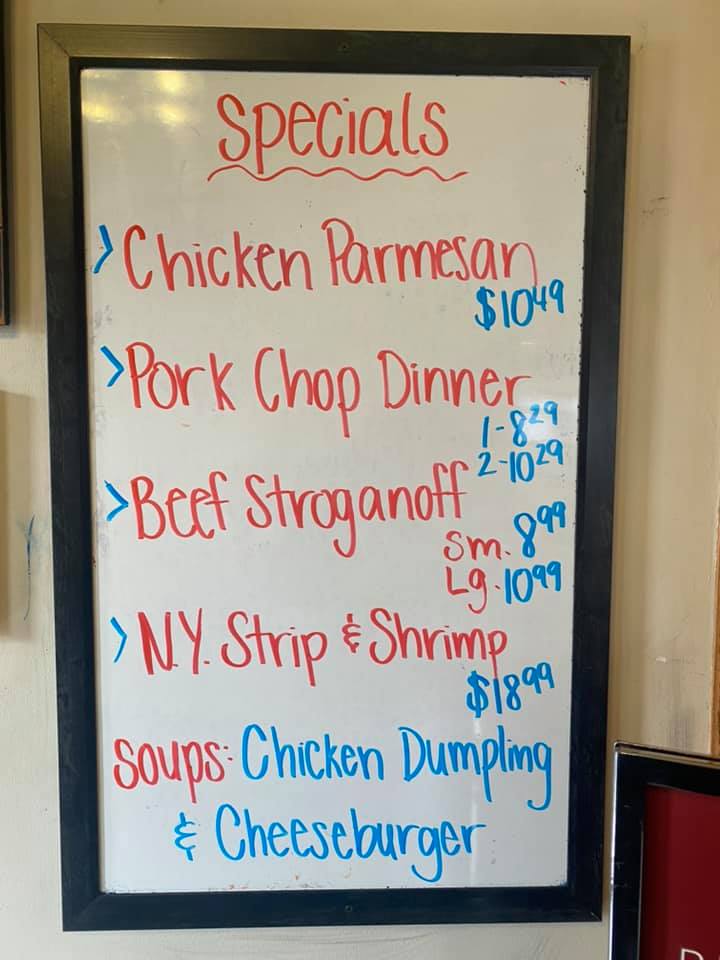 Specials
> Chicken Parmesan
$10.49
> Pork Chop Dinner
1-8.29
2-10.29
> Beef Stroganoff
Sm. 8.99
Lg. 10.99
> N.Y. Strip & Shrimp
$18.99
Soups: Chicken Dumpling
& Cheeseburger